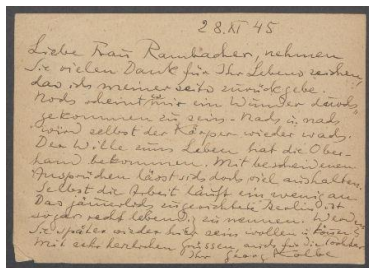 28. XI 45
Liebe Frau Rambächer, nehmen
Sie vielen Dank für Ihr Lebenszeichen,
das ich meinerseits zurückgebe.
Noch scheint mir ein Wunder durch-
gekommen zu sein - Nach u. nach
wird selbst der Körper wieder wach.
Der Wille zum Leben hat die Ober-
hand bekommen. Mit bescheidenen
Ansprüchen lässt sich doch viel aushalten.
Selbst die Arbeit läuft ein wenig an.
Das jämmerlich zugerichtete Berlin ist
sogar recht lebendig zu nennen. Werden
Sie später wieder hier sein wollen u. können?
Mit sehr herzlichen Grüssen, auch für die Tochter
Ihr Georg Kolbe